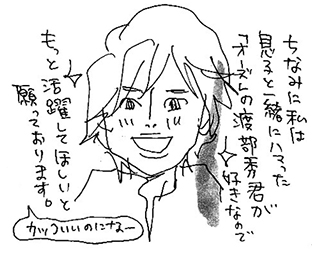 ちなみに私は
息子と一緒にハマった
「オーズ」の渡部秀君が
好きなので
もっと活躍してほしいと
願っております。
カッコいいのになー